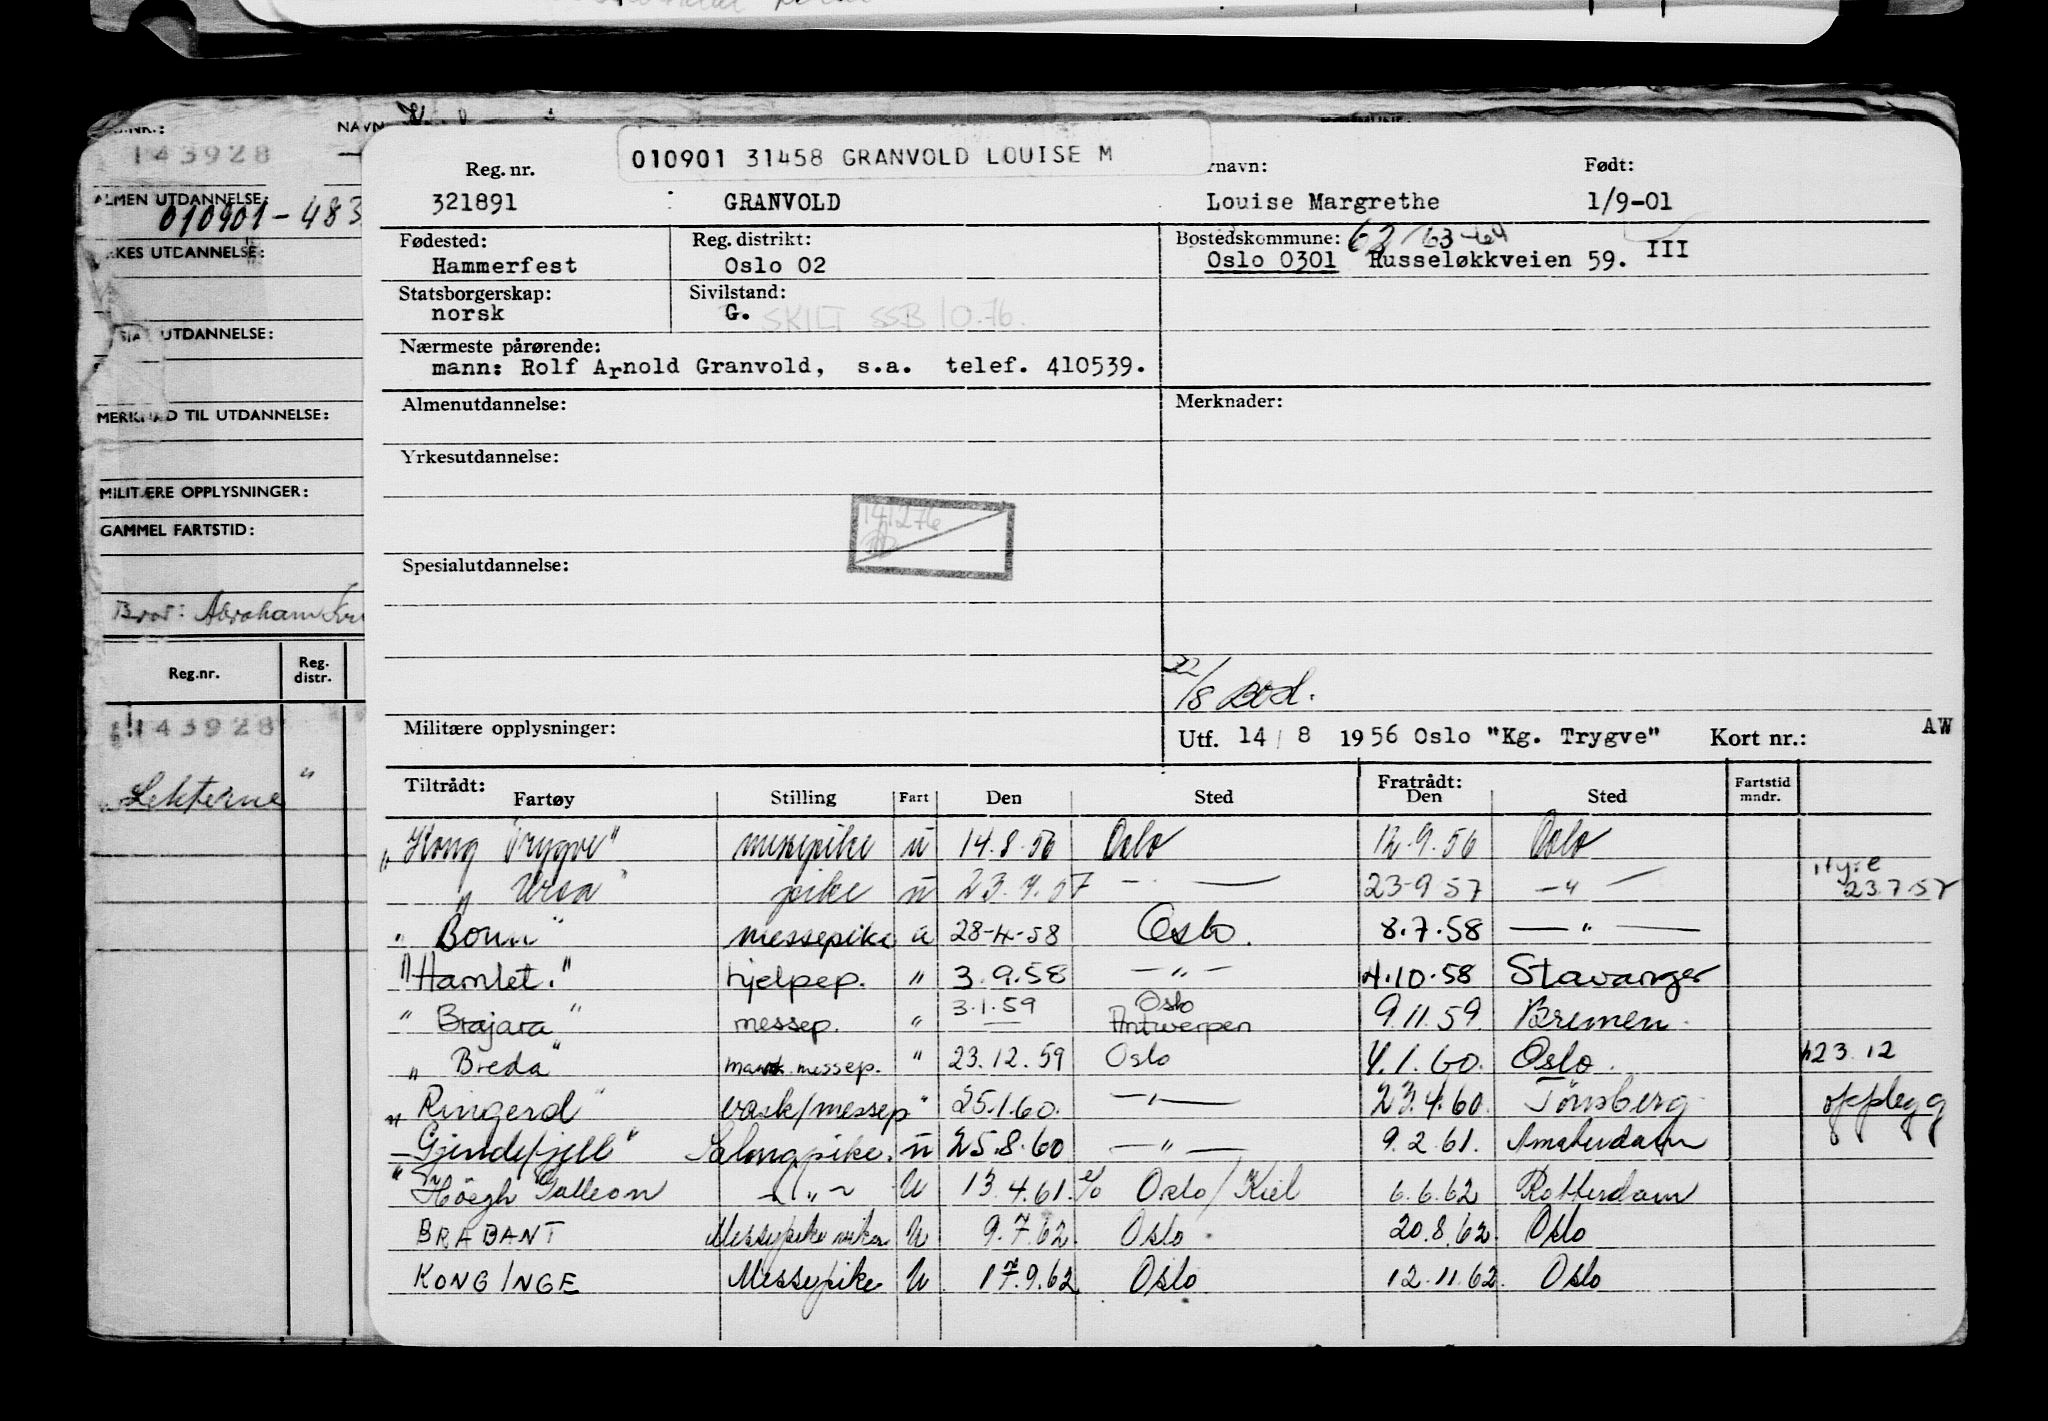 143928
NAVN
ALMEN UTDANNELSE:
010901-483
UTDANNELSE:
UTDANNELSE:
MERKNAD TIL UTDANNELSE:
MILITÆRE OPPLYSNINGER:
GAMMEL FARTSTID:
Bror: Abraham
Reg.nr. Reg. distr.
143928
Lekterne "
010901 31458 GRANVOLD LOUISE M
Reg. nr. rnavn: Født:
321891 GRANVOLD Louise Margrethe 1/9-01
Fødested: Reg. distrikt: Bostedskommune: 62/63-64
Hammerfest Oslo 02 Oslo 0301 Russeløkkveien 59. III
Statsborgerskap: Sivilstand:
norsk G. SKILT SSB 10.76.
Nærmeste pårørende:
mann: Rolf Arnold Granvold, s.a. telef. 410539.
Almenutdannelse: Merknader:
Yrkesutdannelse:
141276
Spesialutdannelse:
22/8 Bod.
Militære opplysninger: Utf. 14/8 1956 Oslo "Kg. Trygve" Kort nr.: AW
Tiltrådt: Fartøy Stilling Fart Den Sted Fratrådt: Den Sted Fartstid mndr.
"Kong Trygve" messepike u 14.8.56 Oslo 12.9.56 Oslo
" Ursa" pike u 23.7.57 — " — 23-9 57 — " — Hyre 23.7.57
" Bonn" messepike u 28-4-58 Oslo. 8.7.58 — " —
"Hamlet." hjelpep. " 3.9.58 — " — 4.10.58 Stavanger
" Brajara " messep. " 3.1.59 Oslo Antwerpen 9.11.59 Bremen.
" Breda" messep. " 23.12.59 Oslo 4.1.60. Oslo. h23.12
" Ringerd" vask/messep " 25.1.60. — " — 23.4.60. Tönsberg opplegg
" Gjendefjell" Salongpike. u 25.8.60 — " — 9.2.61. Amsterdam
" Höegh Galleon — " — U 13.4.61. Oslo/Kiel 6.6.62 Rotterdam
BRABANT Messepike vikar U 9.7.62. Oslo. 20.8.62. Oslo
KONG INGE Messepike U 17.9.62 Oslo 12.11.62. Oslo